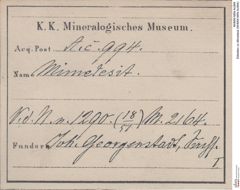 K. K. Mineralogisches Museum.
Acq. Post A. c. 994.
Name Mimetesit.
V. d. N. n. 1290. (18/51) M. 2164.
Fundort Joh. Georgenstadt,
I